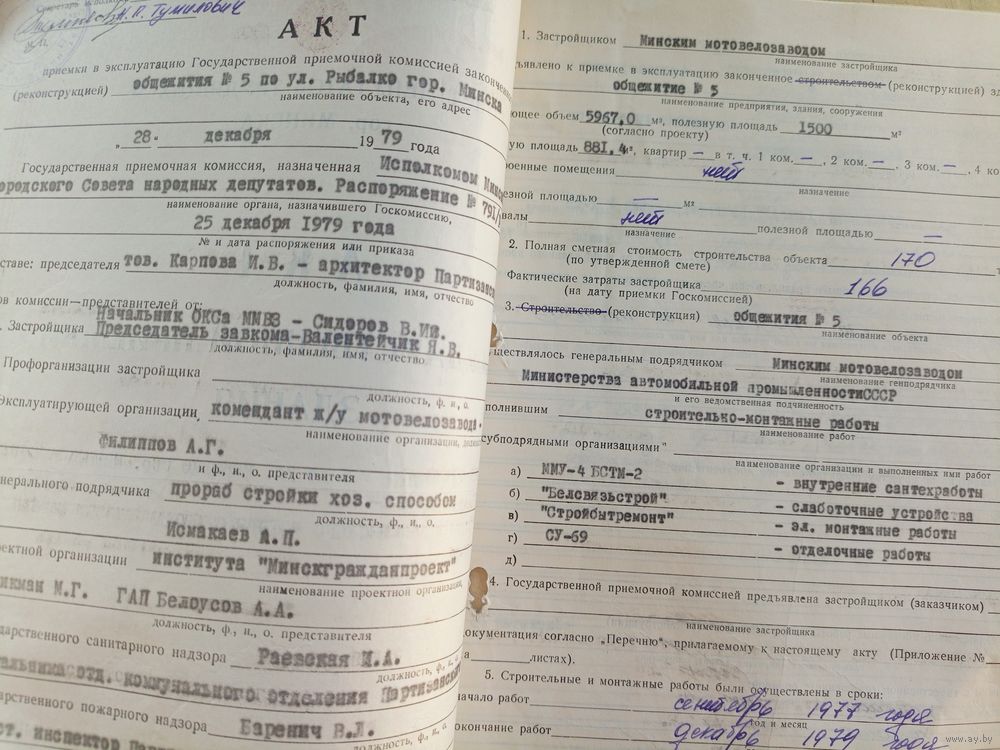 Секретарь исполко
Н.П. Тумилович
АКТ
приемки в эксплуатацию Государственной приемочной комиссией законченн
(реконструкцией) общежития № 5 по ул. Рыбалко гор. Минска
наименование объекта, его адрес
„28“ декабря 1979 года
Государственная приемочная комиссия, назначенная Исполкомом Минс
ородского Совета народных депутатов. Распоряжение № 791/
наименование органа, назначившего Госкомиссию,
25 декабря 1979 года
№ и дата распоряжения или приказа
ставе: председателя тов. Карпова И.В. - архитектор Партизанс
должность, фамилия, имя, отчество
ов комиссии—представителей от:
Начальник ОКСа ММВЗ - Сидоров В.Ив.
. Застройщика Председатель завкома-Валентейчик Я.В.
должность, фамилия, имя, отчество
Профорганизации застройщика
должность, ф. и, о.
Эксплуатирующей организации, комендант ж/у мотовелозавода -
наименование организации, должно
Филиппов А.Г.
и ф., и, о. представителя
енерального подрядчика прораб стройки хоз. способом
должность, ф., и., о.
Исмакаев А.П.
ектной организации института "Минскгражданпроект"
наименование проектной организации,
икман М.Г. ГАП Белоусов А.А.
должность, ф., и., о. представителя
ударственного санитарного надзора Раевская И.А.
должность, ф., и., о.
чальника отд. коммунального отделения Партизанского
дарственного пожарного надзора Баренич В.Л.
ст. инспектор
1. Застройщиком Минским мотовелозаводом
наименование застройщика
дъявлено к приемке в эксплуатацию законченное строительством (реконструкцией) зд
общежитие № 5
наименование предприятия, здания, сооружения
ющее объем 5967,0 м³, полезную площадь 1500 м²
(согласно проекту)
ую площадь 881,4 м², квартир — в т. ч. 1 ком. —, 2 ком. —, 3 ком. —, 4 ко
роенные помещения нет
назначение
езной площадью — м²
валы нет полезной площадью —
назначение
2. Полная сметная стоимость строительства объекта 170
(по утвержденной смете)
Фактические затраты застройщика 166
(на дату приемки Госкомиссией)
3. Строительство (реконструкция) общежития № 5
наименование объекта
ществлялось генеральным подрядчиком Минским мотовелозаводом
наименование генподрядчика
Министерства автомобильной промышленностиСССР
и его ведомственная подчиненность
полнившим строительно-монтажные работы
наименование работ
субподрядными организациями"
наименование организации и выполненных ими работ
а) ММУ-4 БСТМ-2 - внутренние сантехработы
б) "Белсвязьстрой" - слаботочные устройства
в) "Стройбытремонт" - эл. монтажные работы
г) СУ-69 - отделочные работы
д)
4. Государственной приемочной комиссией предъявлена застройщиком (заказчиком)
наименование застройщика
окументация согласно „Перечню“, прилагаемому к настоящему акту (Приложение №
а листах).
5. Строительные и монтажные работы были осуществлены в сроки:
начало работ сентябрь 1977 года
год и месяц
окончание работ декабрь 1979 года
www.ay.by